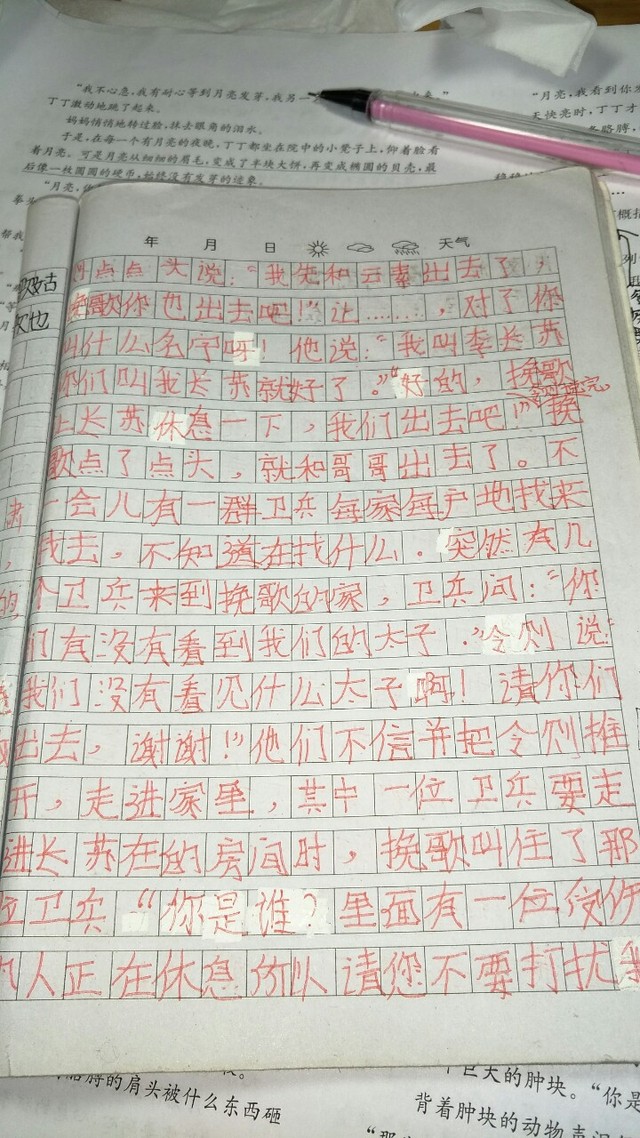 "我不心急,我有耐心等到月亮发芽,我另一
丁丁激动地跳了起来。
妈妈悄悄地转过脸,抹去眼角的泪水。
于是,在每一个有月亮的夜晚,丁丁都坐在院中的小凳子上,仰着脸看
着月亮。可是月亮从细细的眉毛,变成了半块大饼,再变成椭圆的贝壳,最
后像一枚圆圆的硬币,始终没有发芽的迹象。
"月亮,
"月亮,我看到你发
天快亮时,丁丁才
年 月 日 天气
点点头说:"我先和云素出去了,
挽歌你也出去吧!"让……,对了你
叫什么名字呀!他说:"我叫李长苏
你们叫我长苏就好了。""好的,挽歌
让长苏休息一下,我们出去吧!"挽
歌点了点头,就和哥哥出去了。不
一会儿有一群卫兵每家每户地找来
找去,不知道在找什么。突然有几
个卫兵来到挽歌的家,卫兵问:"你
们有没有看到我们的太子."令则说:
我们没有看见什么太子啊!请你们
出去,谢谢!"他们不信并把令则推
开,走进家里,其中一位卫兵要走
进长苏在的房间时,挽歌叫住了那
位卫兵"你是谁?里面有一位受伤
的人正在休息所以请您不要打扰我
的肩头被什么东西砸
个巨大的肿块。"你是
背着肿块的动物